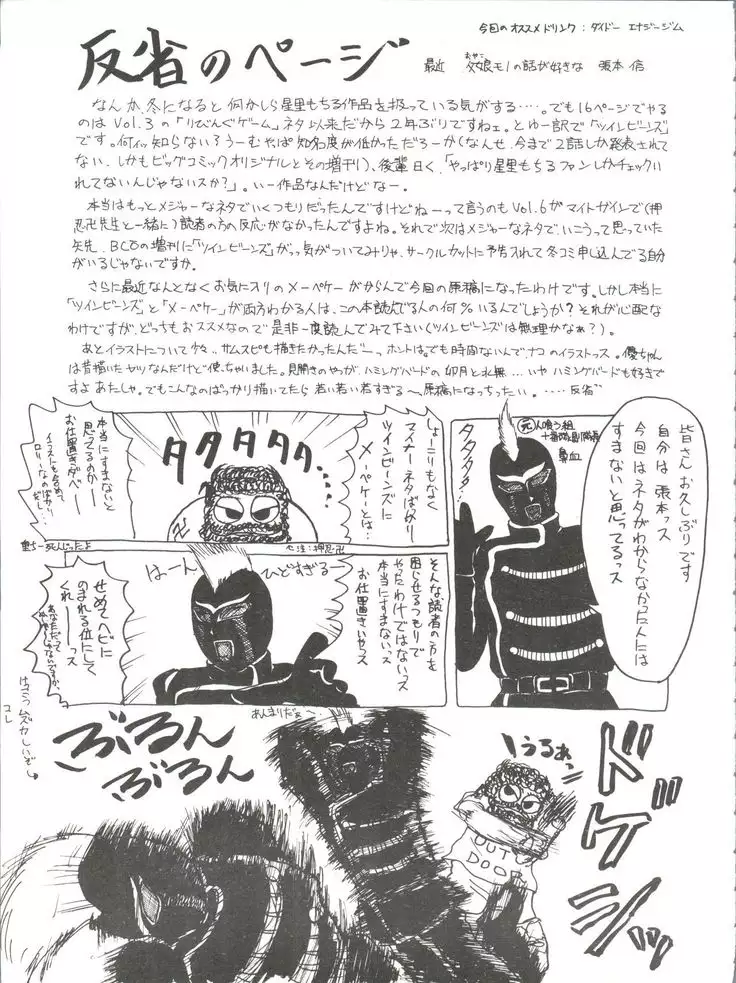 今回のオススメドリンク：ダイドー エナジージム
反省のページ
最近 父娘モノの話が好きな 張本 信
おやこ
なんか、冬になると何かしら星里もちる作品を扱っている気がする‥‥。でも16ページでやる
のはVol.3の「りびんぐゲーム」ネタ以来だから2年ぶりですねェ。とゆー訳で「ツインビーンズ」
です。何ィッ知らない?うーむやっぱ知名度が低かっただろーか(なんせ、今まで2話しか発表されて
ない、しかもビッグコミックオリジナルとその増刊)、後輩曰く、「やっぱり星里もちるファンしかチェック
れてないんじゃないスか?」。いー作品なんだけどなー。
本当はもっとメジャーなネタでいくつもりだったんですけどねーって言うのもVol.6がマイトガインで(押
忍卍先生と一緒に)読者の方の反応がなかったんですよね。それで次はメジャーなネタで、いこうって思っていた
矢先、BCOの増刊に「ツインビーンズ」がっ気がついてみりゃ、サークルカットに予告入れて冬コミ申し込んでる自分
がいるじゃないですか。
さらに最近なんとなくお気に入りのメーペケーがからんで今回の原稿になったわけです。しかし本当に
「ツインビーンズ」と「メーペケー」が両方わかる人は、この本読んでる人の何%いるんでしょうか?それが心配な
わけですが、どっちもおススメなので是非一度読んでみて下さい(ツインビーンズは無理かなぁ?)。
あとイラストについて少々‥サムスピも描きたかったんだーっ、ホントは。でも時間ないんで、ナコのイラストっス。優ちゃん
は昔描いたヤツなんだけど使っちゃいました。見開きのやつが、ハミングバードの卯月と水無‥‥いやハミングバードも好きで
すよあたしゃ。でもこんなのばっかり描いてたら若い若い若すぎる〜原稿になっちったい。‥‥‥反省
皆さんお久しぶりです
自分は張本っス
今回はネタがわからなかった人には
すまないと思ってるっス
元人喰う組
十番隊副隊長
タタタタ‥
しょーこりもなく
マイナーネタばかり
ツインビーンズに
メーペケーとは‥
タタタタタ‥
卍
本当にすまないと
思ってるのかーー
お仕置きだべーーー
イラストも含めて
ロリーなのばっかり
だし‥
※注：押忍卍
そんな読者の方を
困らせるつもりで
やったわけではないっス
本当にすまないっス
お仕置きいやっス
ひどすぎる
はーん
せめてヘビに
のまれる位にして
くれーーっス
あんまりだぁ
けっこうムズカしいぞ
コレ
ぶるん
ぶるん
うるあっ
OUT
DOOR
ドゲシッ